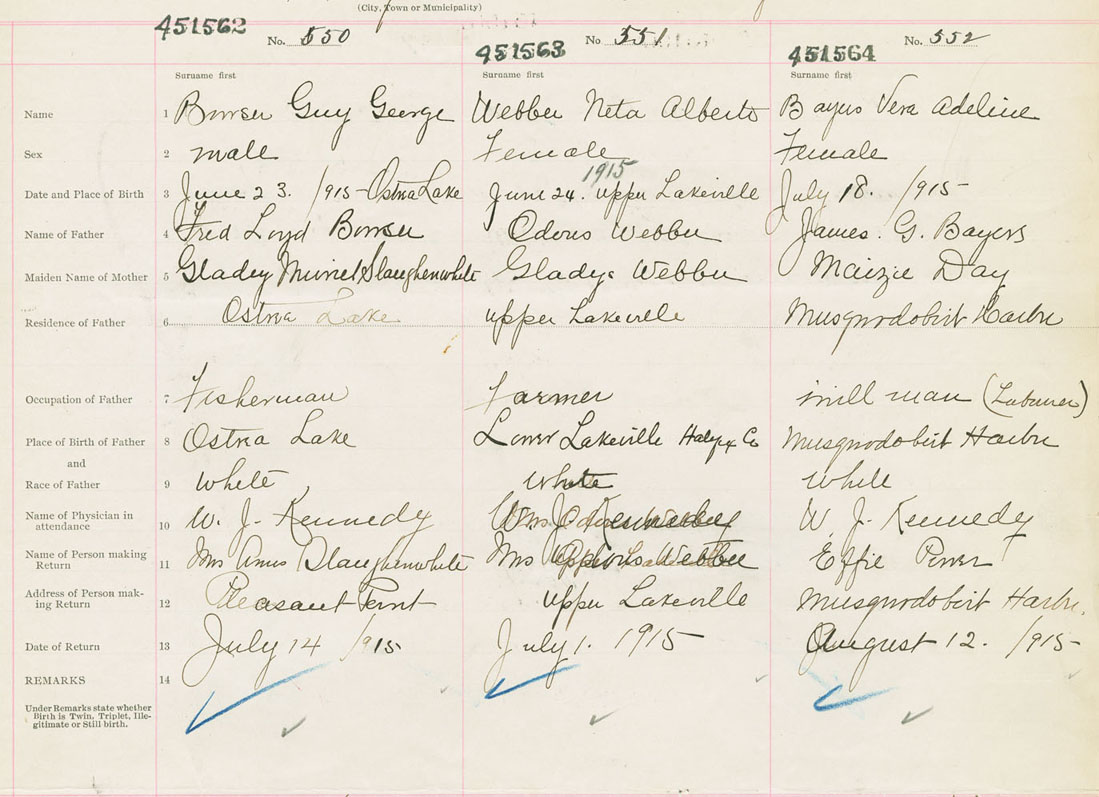 (City, Town or Municipality)
451562 No. 550
451563 No 551
451564 No. 552
Surname first Surname first Surname first
Name 1 Bowser Guy George Webber Neta Alberta Bayers Vera Adeline
Sex 2 male Female Female
1915
Date and Place of Birth 3 June 23. 1915 - Ostrea Lake June 24. Upper Lakeville July 18. 1915
Name of Father 4 Fred Loyd Bowser Odoris Webber James. G. Bayers
Maiden Name of Mother 5 Gladey Muriel Slaughenwhite Gladys Webber Maizie Day
Residence of Father 6 Ostrea Lake Upper Lakeville Musquodobirt Harbr
Occupation of Father 7 Fisherman Farmer mill man (Labourer)
Place of Birth of Father 8 Ostrea Lake Lower Lakeville Halifx Co Musquodobirt Harbr
and
Race of Father 9 White White White
Name of Physician in attendance 10 W. J. Kennedy Wm J Kennedy W. J. Kennedy
Name of Person making Return 11 Mrs Amos Slaughenwhite Mrs Webber Effie Power
Address of Person making Return 12 Pleasant Point Upper Lakeville Musquodobirt Harbr.
Date of Return 13 July 14 1915 July 1. 1915 August 12. 1915
REMARKS 14
Under Remarks state whether
Birth is Twin, Triplet, Ille-
gitimate or Still-birth.